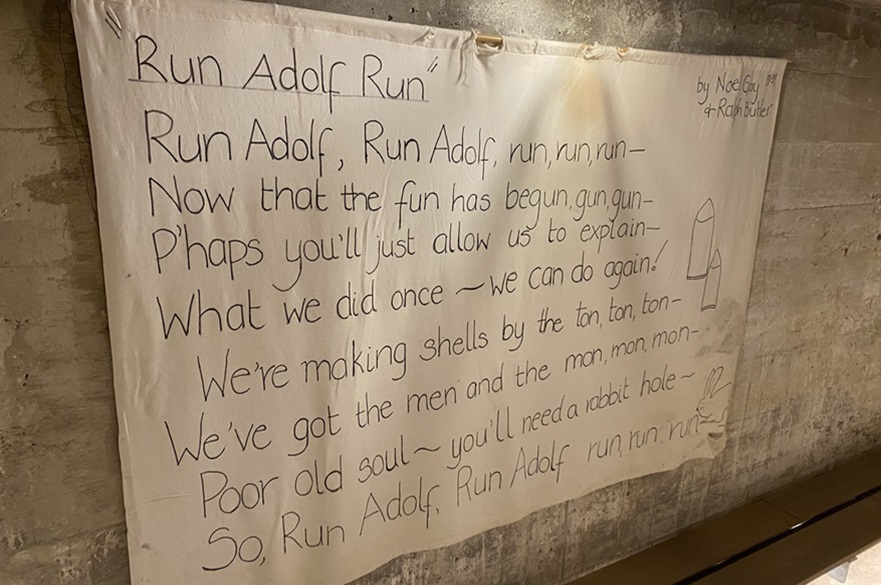 "Run Adolf Run"
by Noel Gay 1939
& Ralph Butler
Run Adolf, Run Adolf, run, run, run—
Now that the fun has begun, gun, gun—
P'haps you'll just allow us to explain—
What we did once ~ we can do again!
We're making shells by the ton, ton, ton—
We've got the men and the mon, mon, mon-
Poor old soul ~ you'll need a rabbit hole ~
So, Run Adolf, Run Adolf run, run, run—